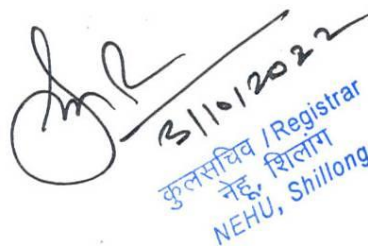 3/10/2022
कुलसचिव / Registrar
नेहू, शिलांग
NEHU, Shillong